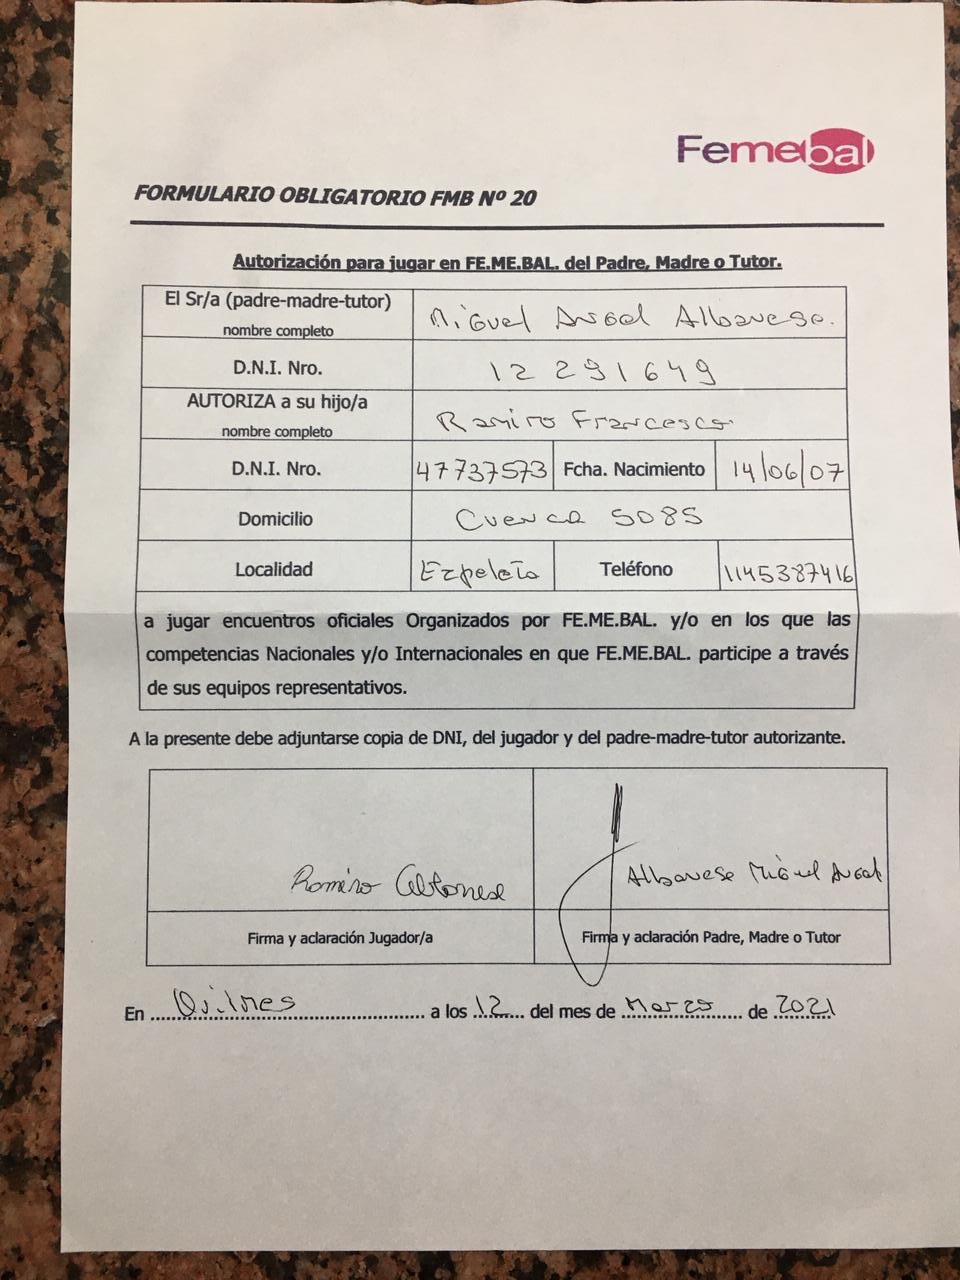 Femebal
FORMULARIO OBLIGATORIO FMB Nº 20
Autorización para jugar en FE.ME.BAL. del Padre, Madre o Tutor.
El Sr/a (padre-madre-tutor)
nombre completo
Miguel Angel Albanese.
D.N.I. Nro. 12 291649
AUTORIZA a su hijo/a
nombre completo
Ramiro Francesco
D.N.I. Nro. 47737573 Fcha. Nacimiento 14/06/07
Domicilio Cuenca 5085
Localidad Ezpeleta Teléfono 1145387416
a jugar encuentros oficiales Organizados por FE.ME.BAL. y/o en los que las
competencias Nacionales y/o Internacionales en que FE.ME.BAL. participe a través
de sus equipos representativos.
A la presente debe adjuntarse copia de DNI, del jugador y del padre-madre-tutor autorizante.
Ramiro Albanese Albanese Miguel Angel
Firma y aclaración Jugador/a Firma y aclaración Padre, Madre o Tutor
En Quilmes a los 12 del mes de Marzo de 2021